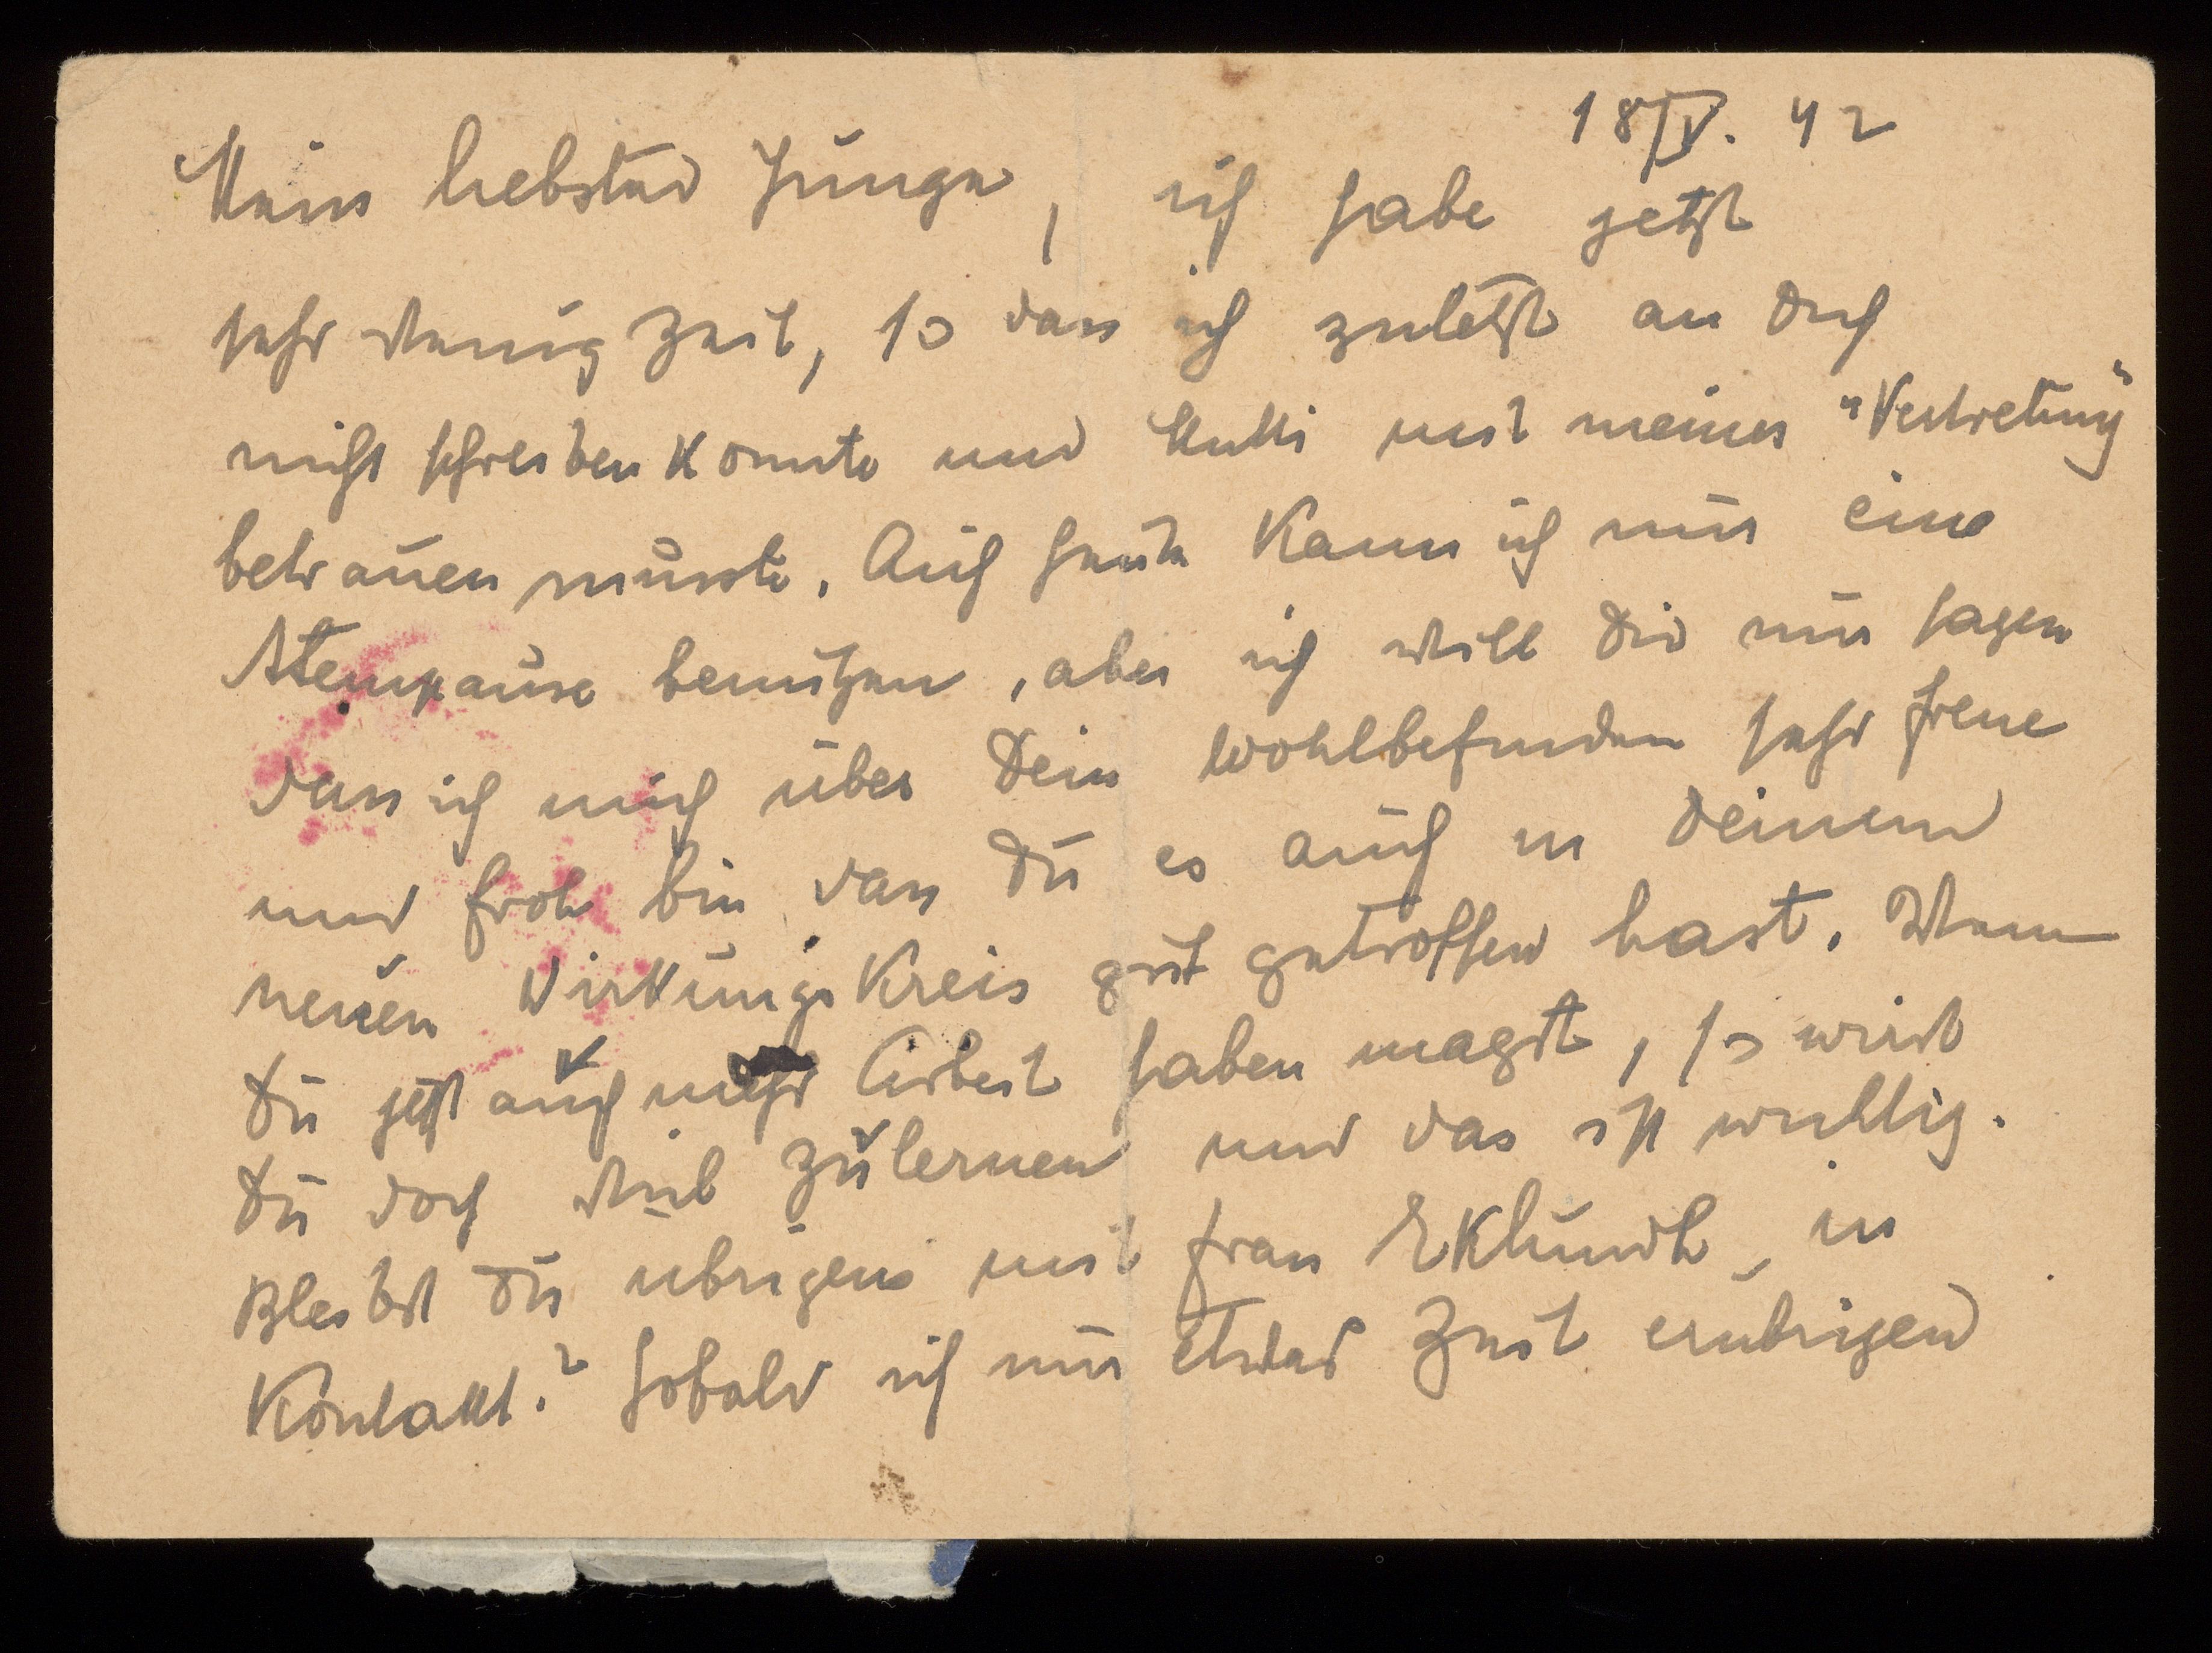 18/IV. 42
Mein liebster Junge, ich habe jetzt
sehr wenig Zeit, so dass ich zuletzt an Dich
nicht schreiben konnte und Mutti mit meiner "Vertretung"
betrauen musste. Auch heute kann ich nur eine
Atempause benutzen, aber ich will Dir nur sagen
dass ich mich über Dein Wohlbefinden sehr freue
und froh bin, dass Du es auch in Deinem
neuen Wirkungskreis gut getroffen hast. Wenn
Du jetzt auch mehr Arbeit haben magst, so wirst
Du doch viel zulernen und das ist wichtig.
Bleibst Du übrigens mit Frau Eklundh in
Kontakt? Sobald ich nur etwas Zeit erübrigen